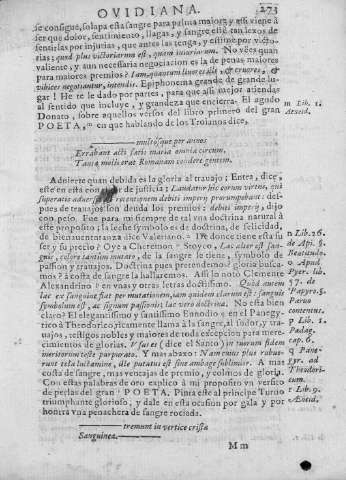 OVIDIANA. 273
se consigue, solapa esta sangre para palma maior, y assi viene à
ser que dolor, sentimiento, llagas, y sangre esté tan lexos de
sentirlas por injurias, que antes las tenga, y estime por victo-
rias; quod plus victoriarum est, quam iniuriarum. No vèes quan
valiente, y aun necessaria negociacion es la de penas maiores
para maiores premios? Iam quantum & cruores, &
vibices negotiantur, intendis. Epiphonema grande de grande lu-
gar! He te le dado por partes, para que assi mejor atiendas
al sentido que incluye, y grandeza que encierra. El agudo
Donato, sobre aquellos versos del libro primero del gran
POETA, m en que hablando de los Troianos dice,
m Lib. 1.
Aeneid.
multosque per annos
Errabant acti fatis maria omnia circum.
Tantæ molis erat Romanam condere gentem.
Advierte quan debida es la gloria al trauajo; Entra, dice,
este en esta con de justicia; Laudatur sic eorum virtus, qui
superatis adversis recontanem debiti imperij prorumpebant: des-
pues de trabajos son deuda los premios; debiti imperij, dijo
con peso. Fue para mi siempre de tal vna doctrina natural à
este proposito; la leche symbolo es de doctrina, de felicidad,
de bienauenturanza dice Valeriano. n De donce tiene esta su
ser y su precio? Oye à Cheremon o Stoyco, Lac alter est san-
guis, colore tantùm mutato, de la sangre la tiene, symbolo de
passion y trauajos. Doctrina pues pretendemos? gloria busca-
mos? à costa de sangre la hallaremos. Assi lo notò Clemente
Alexandrino p en vnas y otras letras doctissimo. Quòd autem
lac ex sanguine fiat per mutationem, iam quidem clarum est: sanguis
symbolum est, ac signum passionis: lac vero doctrinæ. No esta bien
claro? El elegantissimo y santissimo Ennodio q en el Panegy-
rico à Theodorico, ricamente llama à la sangre, al sudor, y tra-
uajos, testigos nobles y maiores de toda excepcion para mere-
cimientos de glorias. Fuisti (dice el Santo) in tuorum fidem
meritorum teste purpurato. Y mas abaxo: Nam cuius plus rubue-
runt tela luctamine, ille putatus est sine ambage sublimior. A mas
costa de sangre, mas ventajas de premio, y colmos de gloria.
Con estas palabras de oro explico à mi proposito vn verso
de perlas del gran r POETA. Pinta este al principe Turno
triumphante glorioso, y dale en esta ocasion por gala y por
honrra vna penachera de sangre rociada.
n Lib. 26.
de Api. §.
Beatitudo.
o Apud
Pyer. lib.
37. de
Papyro. §.
Paruo
contentus.
p Lib. 1.
Padag.
cap. 6.
q Pane-
gyr. ad
Theodori-
cum.
r Lib. 9.
Æneid.
tremunt in vertice cristæ
Sanguineæ.
M m